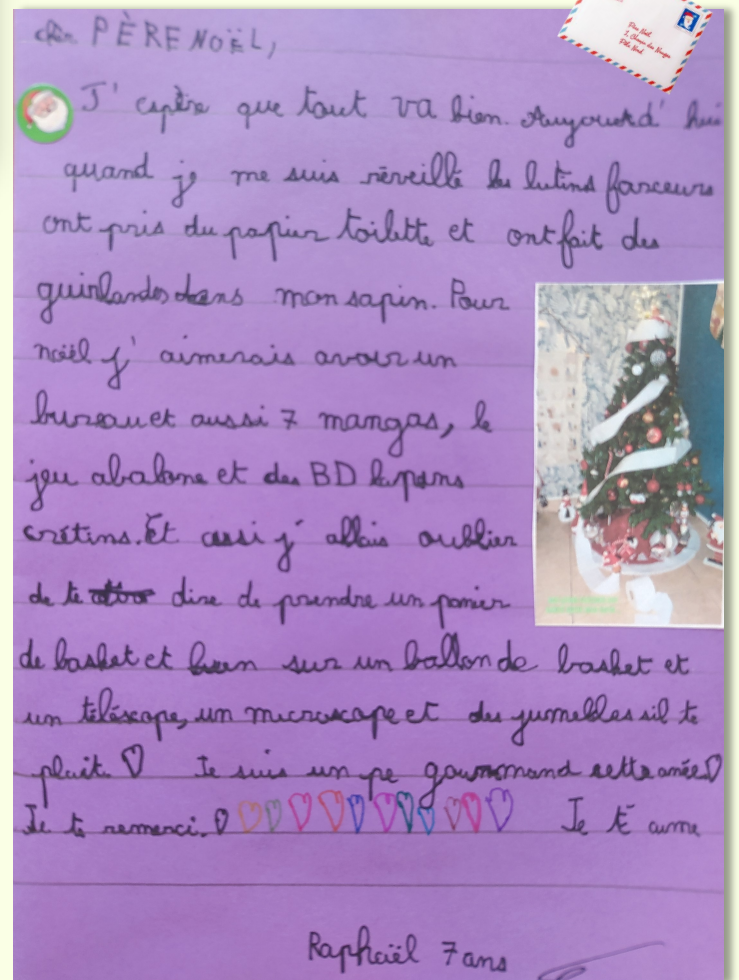 cher PÈRE NOËL,
Père Noël
1, Chemin des Nuages
Pôle Nord
J'espère que tout va bien. Aujourd'hui
quand je me suis réveillé les lutins farceurs
ont pris du papier toilette et ont fait des
guirlandes dans mon sapin. Pour
noël j'aimerais avoir un
bureau et aussi 7 mangas, le
jeu abalone et des BD lapins
crétins. Et aussi j'allais oublier
de te dire de prendre un panier
de basket et bien sur un ballon de basket et
un téléscope, un microscope et des jumelles sil te
plait. ♡ Je suis un pe gourmmand cette anée ♡
Je te remerci. ♡ Je t'aime
Raphaël 7 ans